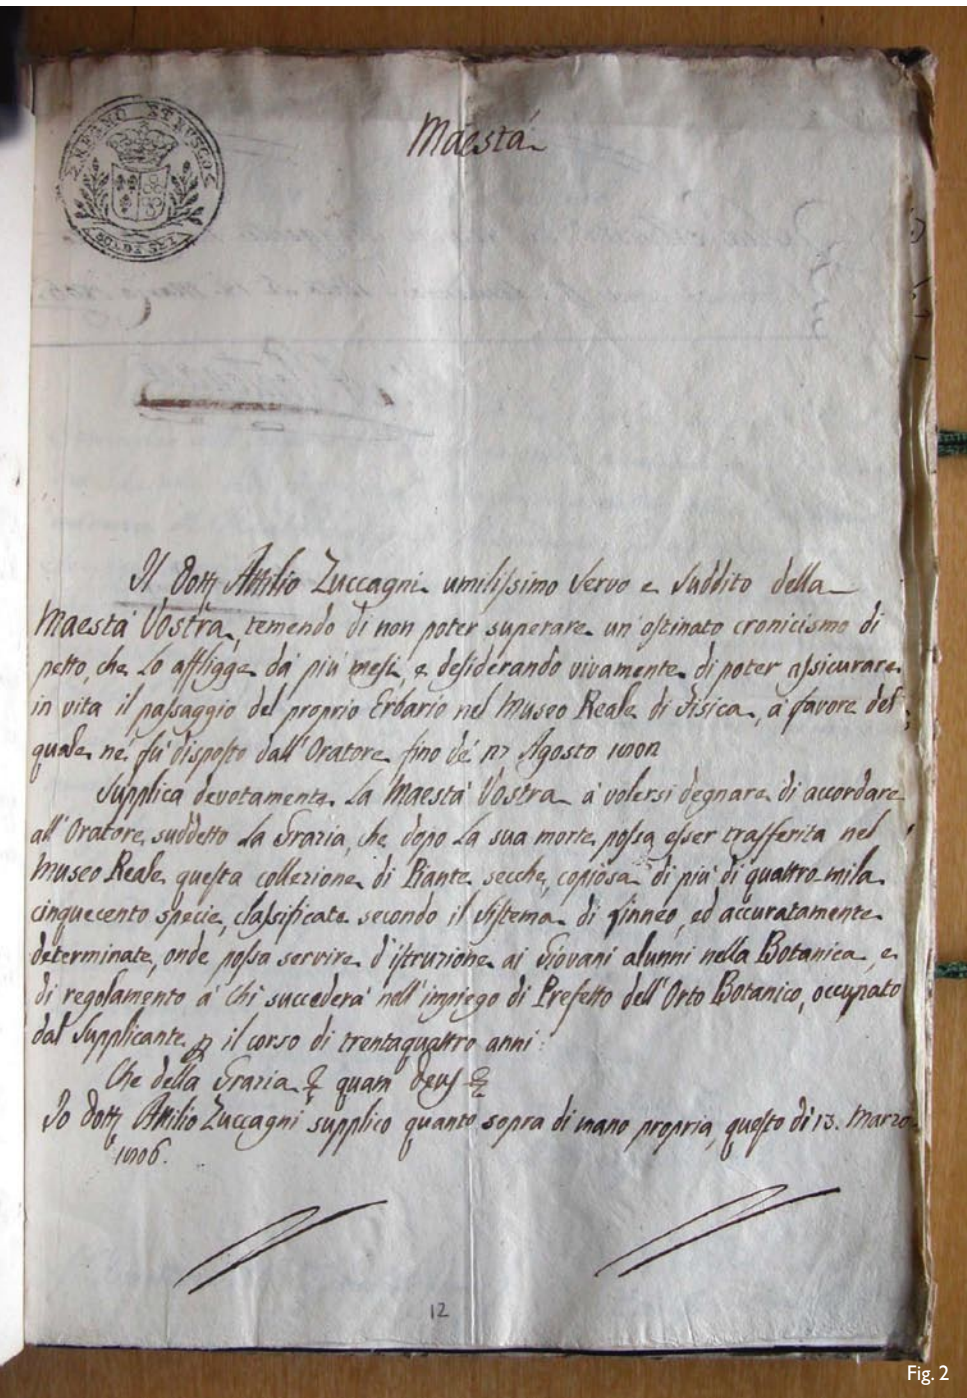 REGNO ETRUSCO
SOLDI SEI
Maestà
Il Dott. Attilio Zuccagni umilissimo Servo e Suddito della
Maestà Vostra, temendo di non poter superare un'ostinato cronicismo di
petto, che Lo affligge da più mesi, e desiderando vivamente di poter assicurare
in vita il passaggio del proprio Erbario nel Museo Reale di Fisica, a favore del
quale ne fù disposto dall'Oratore fino de' 17 Agosto 1802
Supplica devotamente La Maestà Vostra a volersi degnare di accordare
all'Oratore suddetto La Grazia, che dopo La sua morte possa esser trasferita nel
Museo Reale questa collezione di Piante secche, copiosa di più di quattro mila
cinquecento specie, classificate secondo il sistema di Linneo, ed accuratamente
determinate, onde possa servire d'istruzione ai Giovani alunni nella Botanica, e
di regolamento a Chi succederà nell'impiego di Prefetto dell'Orto Botanico, occupato
dal Supplicante p il corso di trentaquattro anni:
Che della Grazia quam Deus
Io Dott. Attilio Zuccagni supplico quanto sopra di mano propria, questo dì 13. Marzo
1806.
12
Fig. 2